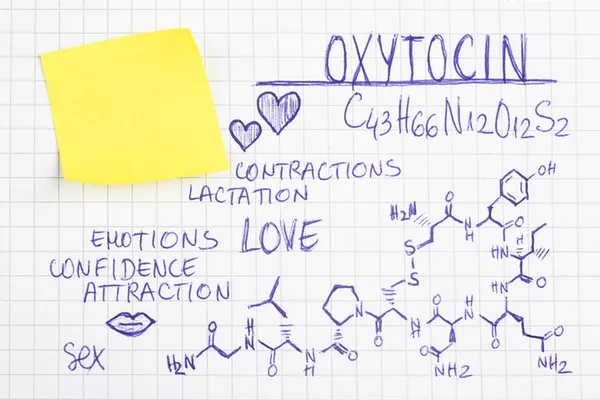 OXYTOCIN
C43H66N12O12S2
CONTRACTIONS
LACTATION
EMOTIONS LOVE
CONFIDENCE
ATTRACTION
sex
OH
H2N
O
N
H
O
S
S
HN
H
O
H
N
H2N
O
H
N
O
N
H
O
N
O
N
H
O
NH2
O
H
N
O
N
H
O
NH2